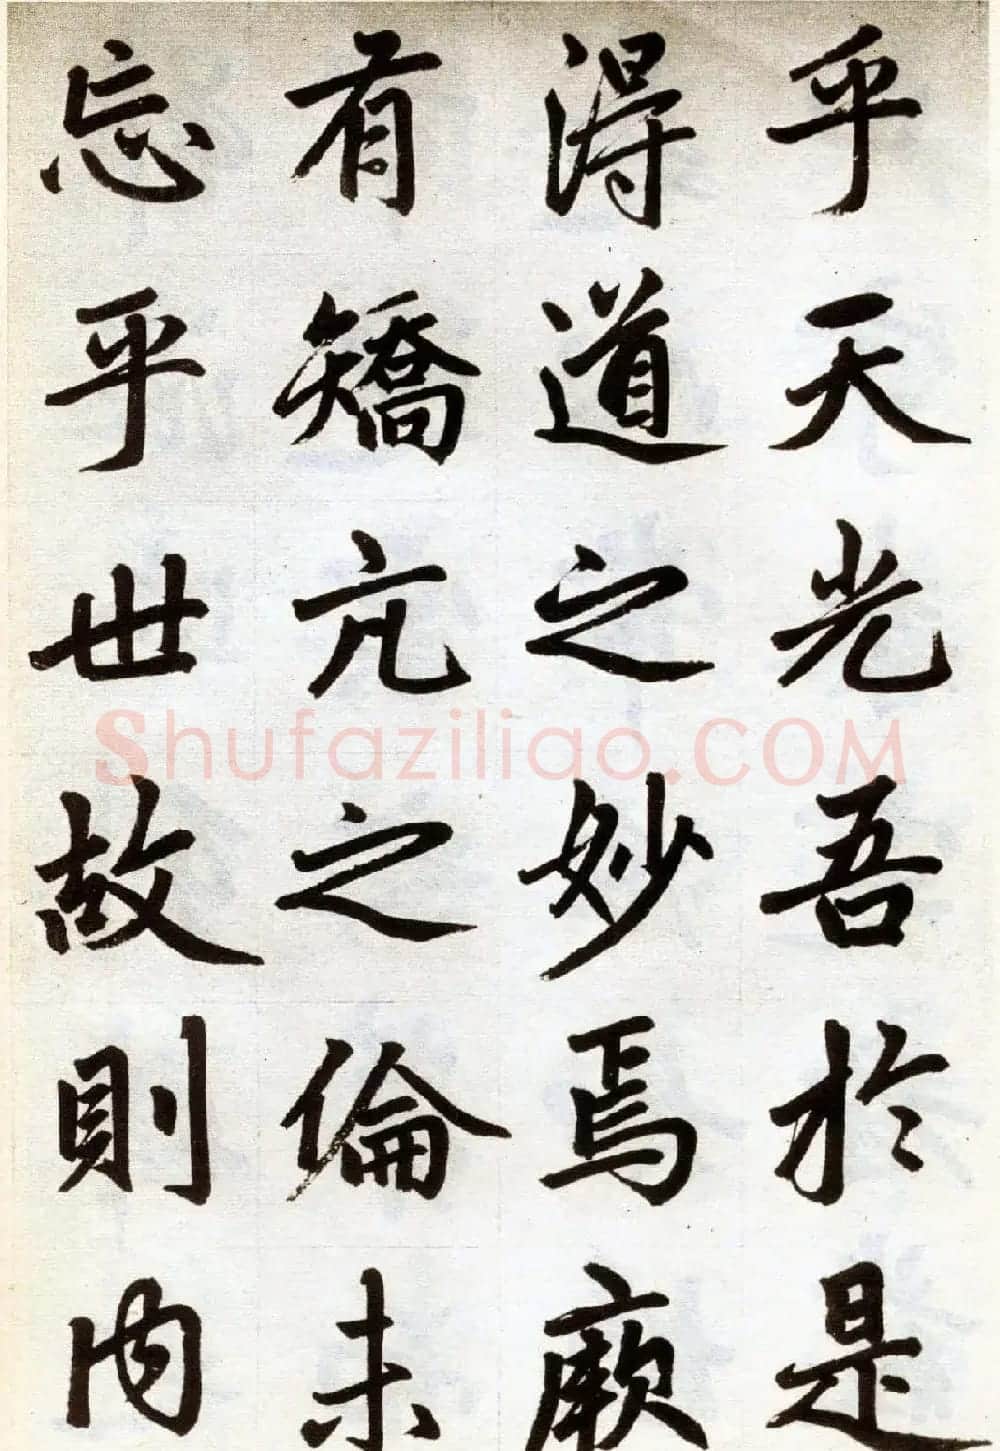 乎天光吾於是
得道之妙焉厥
有矯亢之倫未
忘乎世故則内
Shufaziliao.COM